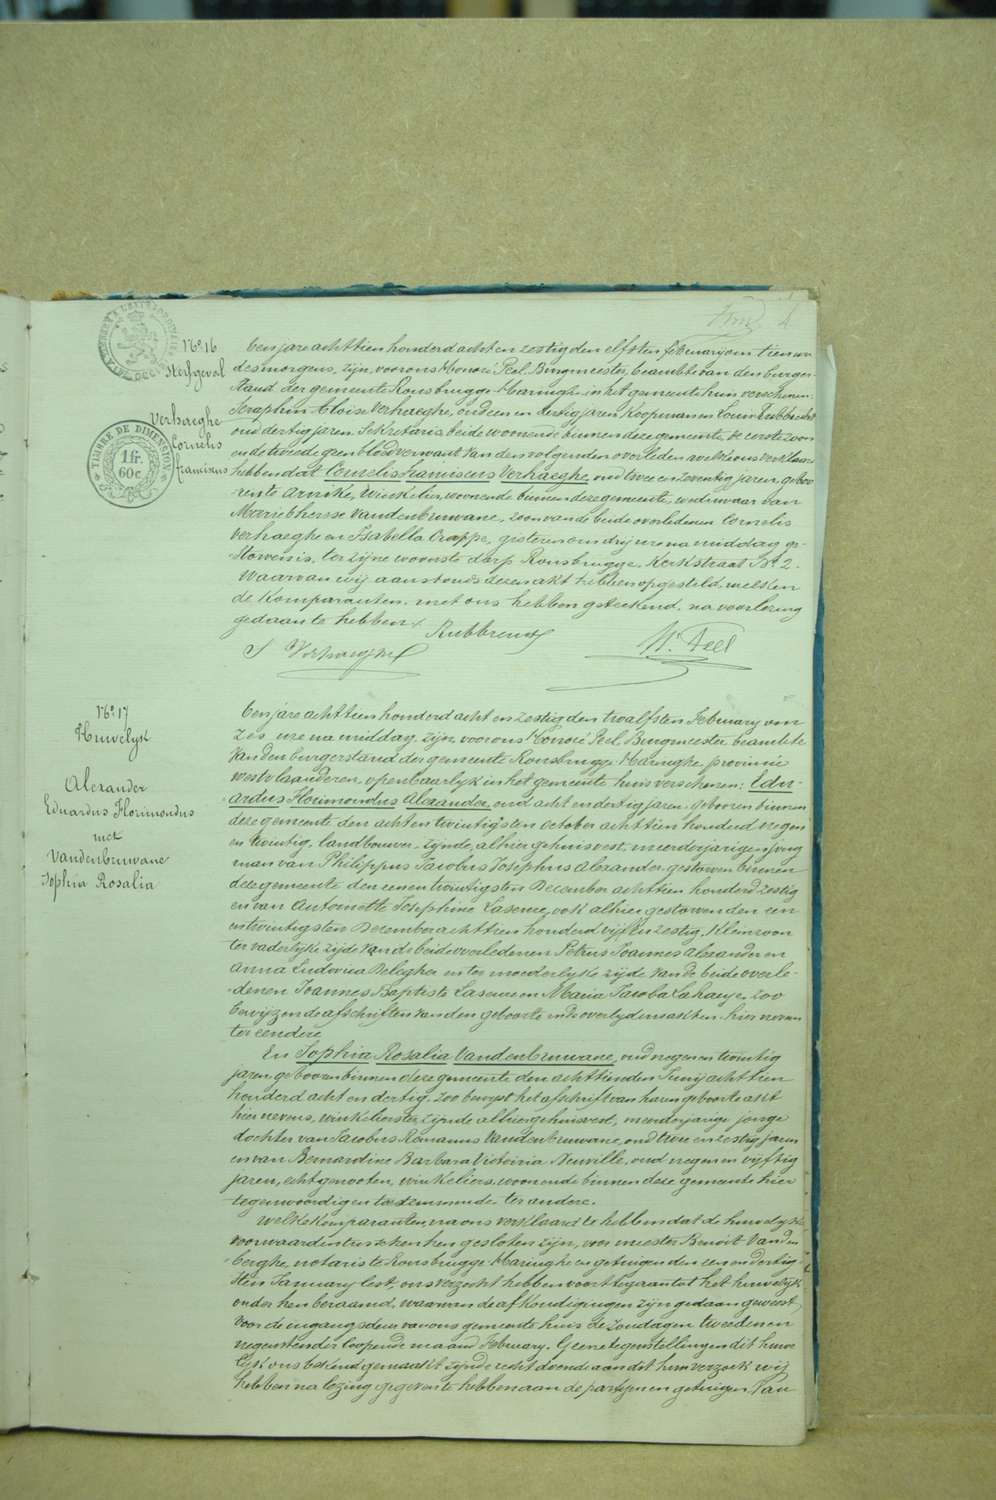 N.º 16
Sterfgeval
Verhaeghe
Cornelis
franciscus
TIMBRE DE DIMENSION
1 fr.
60 c.
Ten jare achttien honderd acht en zestig den elfsten februarij om tien ure
des morgens, zijn voor ons Honoré Peel, Burgmeester, beambte van den burger-
stand der gemeente Rousbrugge-Haringhe in het gemeente huis verschenen:
Seraphin Aloise Verhaeghe, oud een en dertig jaren, koopman en Louis Rubbrecht
oud dertig jaren, Sekretaris, beide woonende binnen deze gemeente, de eerste zoon
en de tweede geen bloedverwant van den volgenden overleden welke ons verklaard
hebben dat Cornelis franciscus Verhaeghe, oud twee en zeventig jaren, geboo-
ren te Arnéke, Winkelier, woonende binnen deze gemeente, weduwaar van
Marie Therese Vandenbruwane, zoon van de beide overledenen Cornelis
Verhaeghe en Isabella Crappe, gisteren om drij ure na middag ge-
storven is, ter zijne woonste dorp Rousbrugge, Kerkstraat N.º 2.
Waarvan wij aanstonds dezen akt hebben opgesteld, welken
de komparanten met ons hebben geteekend, na voorlezing
gedaan te hebben.
S Verhaeghe
H. Peel
N.º 17
Huwelijk
Alexander
Eduardus Florimondus
met
Vandenbruwane
Sophia Rosalia
Ten jare achttien honderd acht en zestig den twaalfsten February om
zes ure na middag, zijn voor ons Honoré Peel, Burgmeester beambte
van den burgerstand der gemeente Rousbrugge-Haringhe, provincie
Westvlaanderen, openbaarlijk in het gemeente huis verschenen: Edu-
ardus Florimondus Alexander, oud acht en dertig jaren, gebooren binnen
deze gemeente den acht en twintigsten October achttien honderd negen
en twintig, landbouwer, zijnde alhier gehuisvest, meerderjarigen jong
man van Philippus Jacobus Josephus Alexander, gestorven binnen
deze gemeente den eenen twintigsten December achttien honderd zestig
en van Antoinette Josephine Laseure, ook alhier gestorven den een
en twintigsten December achttien honderd vijf en zestig, kleinzoon
ter vaderlijke zijde van de beide overledenen Petrus Joannes Alexander en
Anna Ludovica Delegher en ter moederlijke zijde van de beide overle-
denen Joannes Baptiste Laseure en Maria Jacoba Lahaeye, zoo
bewijzen de afschriften van den geboorte en de overlydens akten hier neven
ter eendere
En Sophia Rosalia Vandenbruwane, oud negen en twintig
jaren, gebooren binnen deze gemeente den achttienden Junij achttien
honderd acht en dertig, zoo bewyst het afschrift van haren geboorte akt
hier nevens, winkelierster, zijnde alhier gehuisvest, meerderjarige jonge
dochter van Jacobus Romanus Vandenbruwane, oud twee en zestig jaren
en van Bernardine Barbara Victoiria Neuville, oud negen en vijftig
jaren, echtgenooten, winkeliers, woonende binnen deze gemeente hier
tegenwoordig en toestemmende ter andere.
Welke komparanten, na ons verklaard te hebben dat de huwelijks
voorwaarden tusschen hen gesloten zijn, voor meester Benoit Vanden
berghe, notaris te Rousbrugge-Haringhe en getuigen den een en dertig-
sten January lest, ons verzocht hebben voort te gaan tot het huwelijk
onder hen beraamd, waarvan de afkondigingen zijn gedaan geweest
voor de ingangsdeur van ons gemeente huis de zondagen tweeden en
negensten der loopende maand February. Geene tegenstellingen dit huwe
lijk ons bekend gemaakt zijnde recht doende aan dit hun verzoek wij
hebben na lezing gegeven te hebben aan de partijen en getuigen, van